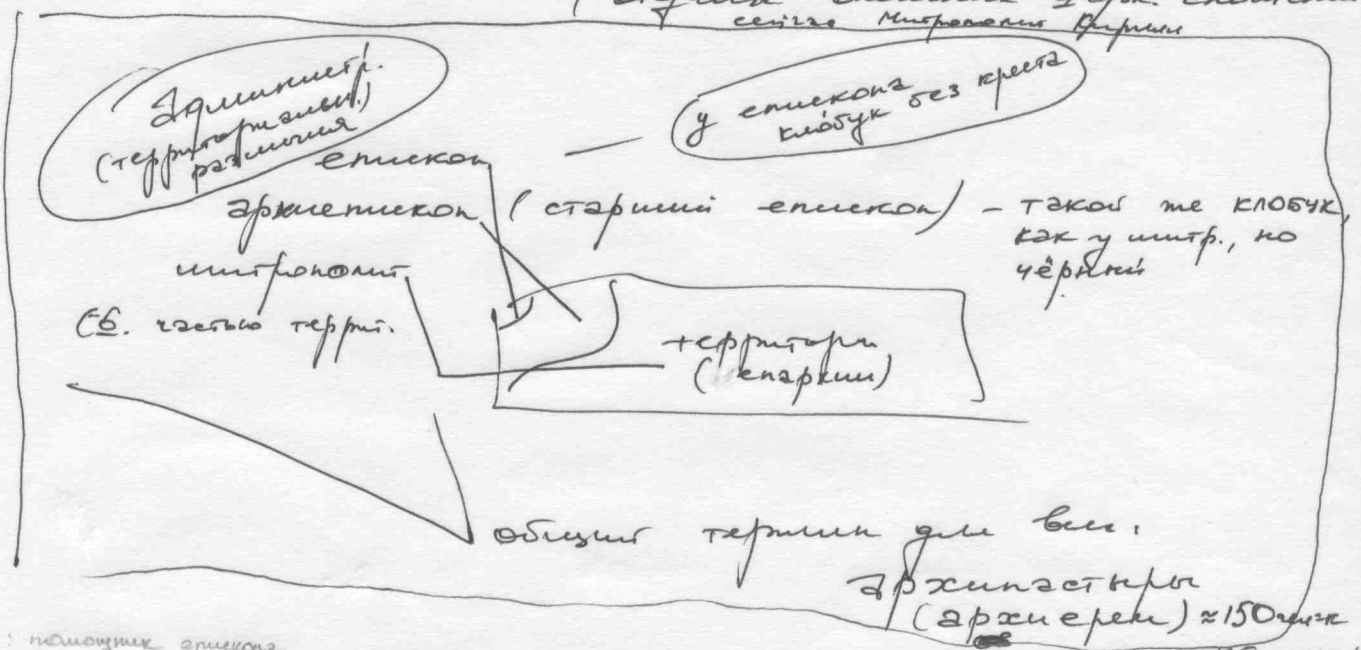 сейчас Митрополит Кирилл
Администр.
(территориальн.)
различия
у епископа
клобук без креста
епископ —
архиепископ (старший епископ) – такой же клобук,
как у митр., но
чёрный
митрополит
частью террит.
территори
(епархии)
общий термин для всех:
архипастыры
(архиереи) ≈ 150 чел-к
: помощник епископа